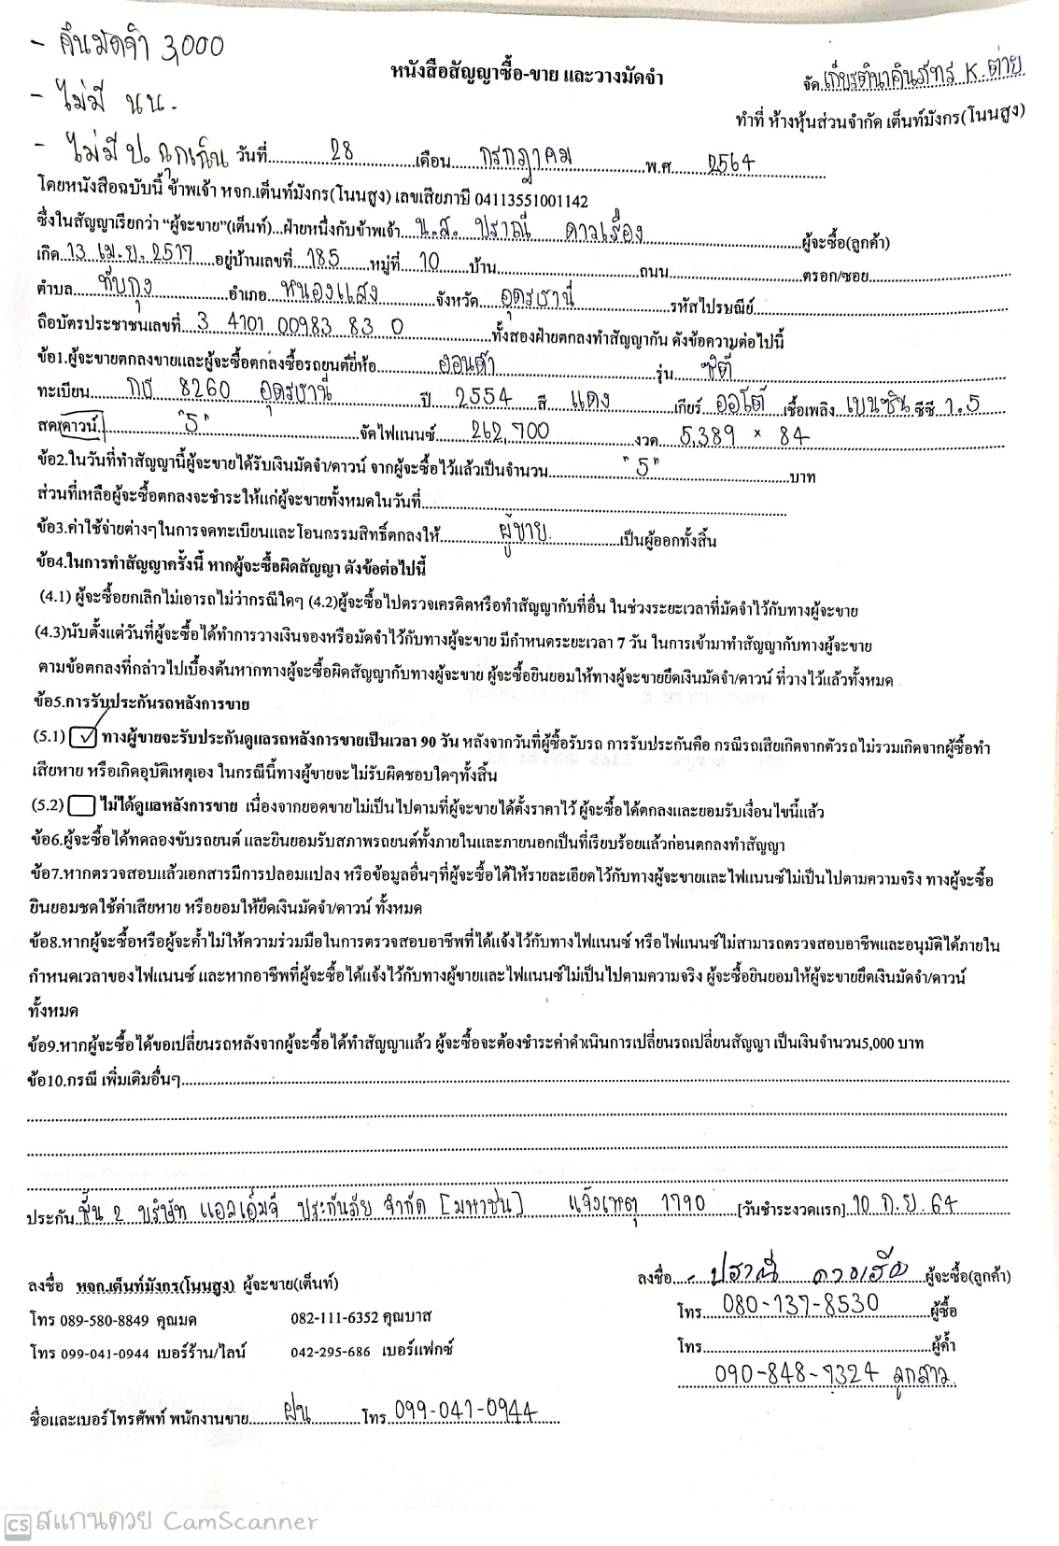 - คืนมัดจำ 3,000
หนังสือสัญญาซื้อ-ขาย และวางมัดจำ
จัด เกียรตินาคินภัทร K.ต่าย
- ไม่มี นน.
ทำที่ ห้างหุ้นส่วนจำกัด เต็นท์มังกร(โนนสูง)
- ไม่มี ป. ฉุกเฉิน วันที่ 28 เดือน กรกฎาคม พ.ศ. 2564
โดยหนังสือฉบับนี้ ข้าพเจ้า หจก.เต็นท์มังกร(โนนสูง) เลขเสียภาษี 04113551001142
ซึ่งในสัญญาเรียกว่า "ผู้จะขาย"(เต็นท์)...ฝ่ายหนึ่งกับข้าพเจ้า น.ส. ปราณี ดาวเรือง ผู้จะซื้อ(ลูกค้า)
เกิด 13 เม.ย. 2517 อยู่บ้านเลขที่ 185 หมู่ที่ 10 บ้าน ถนน ตรอก/ซอย
ตำบล ทับกุง อำเภอ หนองแสง จังหวัด อุดรธานี รหัสไปรษณีย์
ถือบัตรประชาชนเลขที่ 3 4101 00983 83 0 ทั้งสองฝ่ายตกลงทำสัญญากัน ดังข้อความต่อไปนี้
ข้อ1.ผู้จะขายตกลงขายและผู้จะซื้อตกลงซื้อรถยนต์ยี่ห้อ ฮอนด้า รุ่น ซิตี้
ทะเบียน กธ 8260 อุดรธานี ปี 2554 สี แดง เกียร์ ออโต้ เชื้อเพลิง เบนซิน ซีซี 1.5
สด/ดาวน์ "5" จัดไฟแนนซ์ 262,700 งวด 5,389 × 84
ข้อ2.ในวันที่ทำสัญญานี้ผู้จะขายได้รับเงินมัดจำ/ดาวน์ จากผู้จะซื้อไว้แล้วเป็นจำนวน "5" บาท
ส่วนที่เหลือผู้จะซื้อตกลงจะชำระให้แก่ผู้จะขายทั้งหมดในวันที่
ข้อ3.ค่าใช้จ่ายต่างๆในการจดทะเบียนและโอนกรรมสิทธิ์ตกลงให้ ผู้ขาย เป็นผู้ออกทั้งสิ้น
ข้อ4.ในการทำสัญญาครั้งนี้ หากผู้จะซื้อผิดสัญญา ดังข้อต่อไปนี้
(4.1) ผู้จะซื้อยกเลิกไม่เอารถไม่ว่ากรณีใดๆ (4.2)ผู้จะซื้อไปตรวจเครดิตหรือทำสัญญากับที่อื่น ในช่วงระยะเวลาที่มัดจำไว้กับทางผู้จะขาย
(4.3)นับตั้งแต่วันที่ผู้จะซื้อได้ทำการวางเงินจองหรือมัดจำไว้กับทางผู้จะขาย มีกำหนดระยะเวลา 7 วัน ในการเข้ามาทำสัญญากับทางผู้จะขาย
ตามข้อตกลงที่กล่าวไปเบื้องต้นหากทางผู้จะซื้อผิดสัญญากับทางผู้จะขาย ผู้จะซื้อยินยอมให้ทางผู้จะขายยึดเงินมัดจำ/ดาวน์ ที่วางไว้แล้วทั้งหมด
ข้อ5.การรับประกันรถหลังการขาย
(5.1) ✓ ทางผู้ขายจะรับประกันดูแลรถหลังการขายเป็นเวลา 90 วัน หลังจากวันที่ผู้ซื้อรับรถ การรับประกันคือ กรณีรถเสียเกิดจากตัวรถไม่รวมเกิดจากผู้ซื้อทำ
เสียหาย หรือเกิดอุบัติเหตุเอง ในกรณีนี้ทางผู้ขายจะไม่รับผิดชอบใดๆทั้งสิ้น
(5.2) ไม่ได้ดูแลหลังการขาย เนื่องจากยอดขายไม่เป็นไปตามที่ผู้จะขายได้ตั้งราคาไว้ ผู้จะซื้อได้ตกลงและยอมรับเงื่อนไขนี้แล้ว
ข้อ6.ผู้จะซื้อได้ทดลองขับรถยนต์ และยินยอมรับสภาพรถยนต์ทั้งภายในและภายนอกเป็นที่เรียบร้อยแล้วก่อนตกลงทำสัญญา
ข้อ7.หากตรวจสอบแล้วเอกสารมีการปลอมแปลง หรือข้อมูลอื่นๆที่ผู้จะซื้อได้ให้รายละเอียดไว้กับทางผู้จะขายและไฟแนนซ์ไม่เป็นไปตามความจริง ทางผู้จะซื้อ
ยินยอมชดใช้ค่าเสียหาย หรือยอมให้ยึดเงินมัดจำ/ดาวน์ ทั้งหมด
ข้อ8.หากผู้จะซื้อหรือผู้จะค้ำไม่ให้ความร่วมมือในการตรวจสอบอาชีพที่ได้แจ้งไว้กับทางไฟแนนซ์ หรือไฟแนนซ์ไม่สามารถตรวจสอบอาชีพและอนุมัติได้ภายใน
กำหนดเวลาของไฟแนนซ์ และหากอาชีพที่ผู้จะซื้อได้แจ้งไว้กับทางผู้ขายและไฟแนนซ์ไม่เป็นไปตามความจริง ผู้จะซื้อยินยอมให้ผู้จะขายยึดเงินมัดจำ/ดาวน์
ทั้งหมด
ข้อ9.หากผู้จะซื้อได้ขอเปลี่ยนรถหลังจากผู้จะซื้อได้ทำสัญญาแล้ว ผู้จะซื้อจะต้องชำระค่าดำเนินการเปลี่ยนรถเปลี่ยนสัญญา เป็นเงินจำนวน5,000 บาท
ข้อ10.กรณี เพิ่มเติมอื่นๆ
ประกัน ชั้น 2 บริษัท แอลเอ็มจี ประกันภัย จำกัด [มหาชน] แจ้งเหตุ 1790 [วันชำระงวดแรก] 10 ก.ย. 64
ลงชื่อ หจก.เต็นท์มังกร(โนนสูง) ผู้จะขาย(เต็นท์)
ลงชื่อ ปราณี ดาวเรือง ผู้จะซื้อ(ลูกค้า)
โทร 089-580-8849 คุณมด 082-111-6352 คุณบาส
โทร 080-137-8530 ผู้ซื้อ
โทร 099-041-0944 เบอร์ร้าน/ไลน์ 042-295-686 เบอร์แฟกซ์
โทร ผู้ค้ำ
090-848-9324 ลูกสาว
ชื่อและเบอร์โทรศัพท์ พนักงานขาย ฝน โทร 099-041-0944
CS สแกนด้วย CamScanner